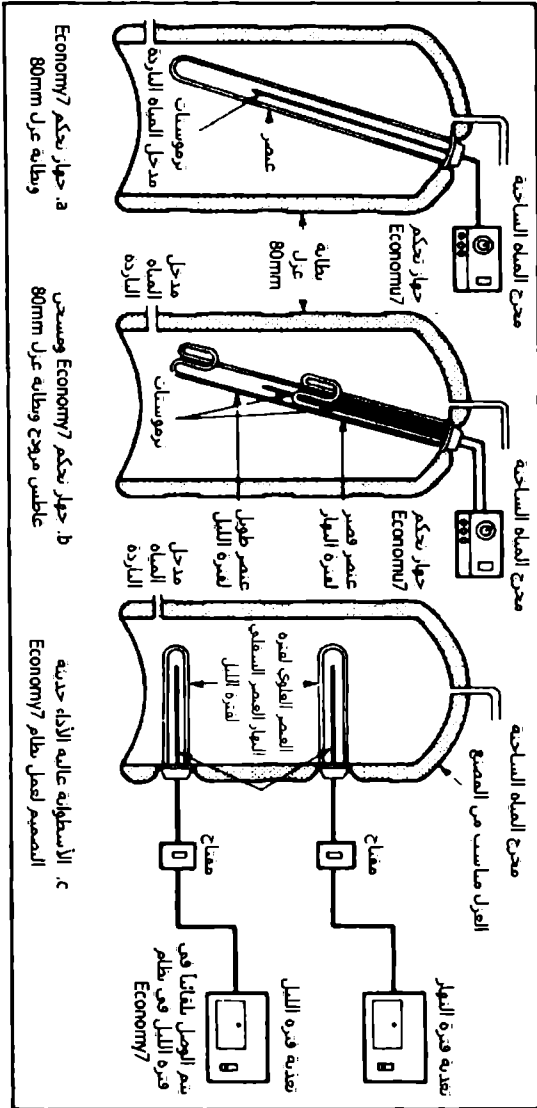 مخرج المياه الساخنة
جهاز تحكم
Economu7
عنصر
ترموستات
مدخل المياه الباردة
بطانة
عزل
80mm
a. جهاز تحكم Economy7
وبطانة عزل 80mm
مخرج المياه الساخنة
جهاز تحكم
Economu7
عنصر قصير
لفترة النهار
عنصر طويل
لفترة الليل
ترموستات
مدخل
المياه
الباردة
b. جهاز تحكم Economy7 ومسخن
غاطس مزودج وبطانة عزل 80mm
مخرج المياه الساخنة
العزل مناسب من المصنع
العنصر العلوي لفترة
النهار العنصر السفلي
لفترة الليل
مدخل
المياه
الباردة
مفتاح
مفتاح
تغذية فترة النهار
تغذية فترة الليل
يتم الوصل تلقائياً في
فترة الليل في نظام
Economy7
c. الأسطوانة عالية الأداء حديثة
التصميم لعمل نظام Economy7